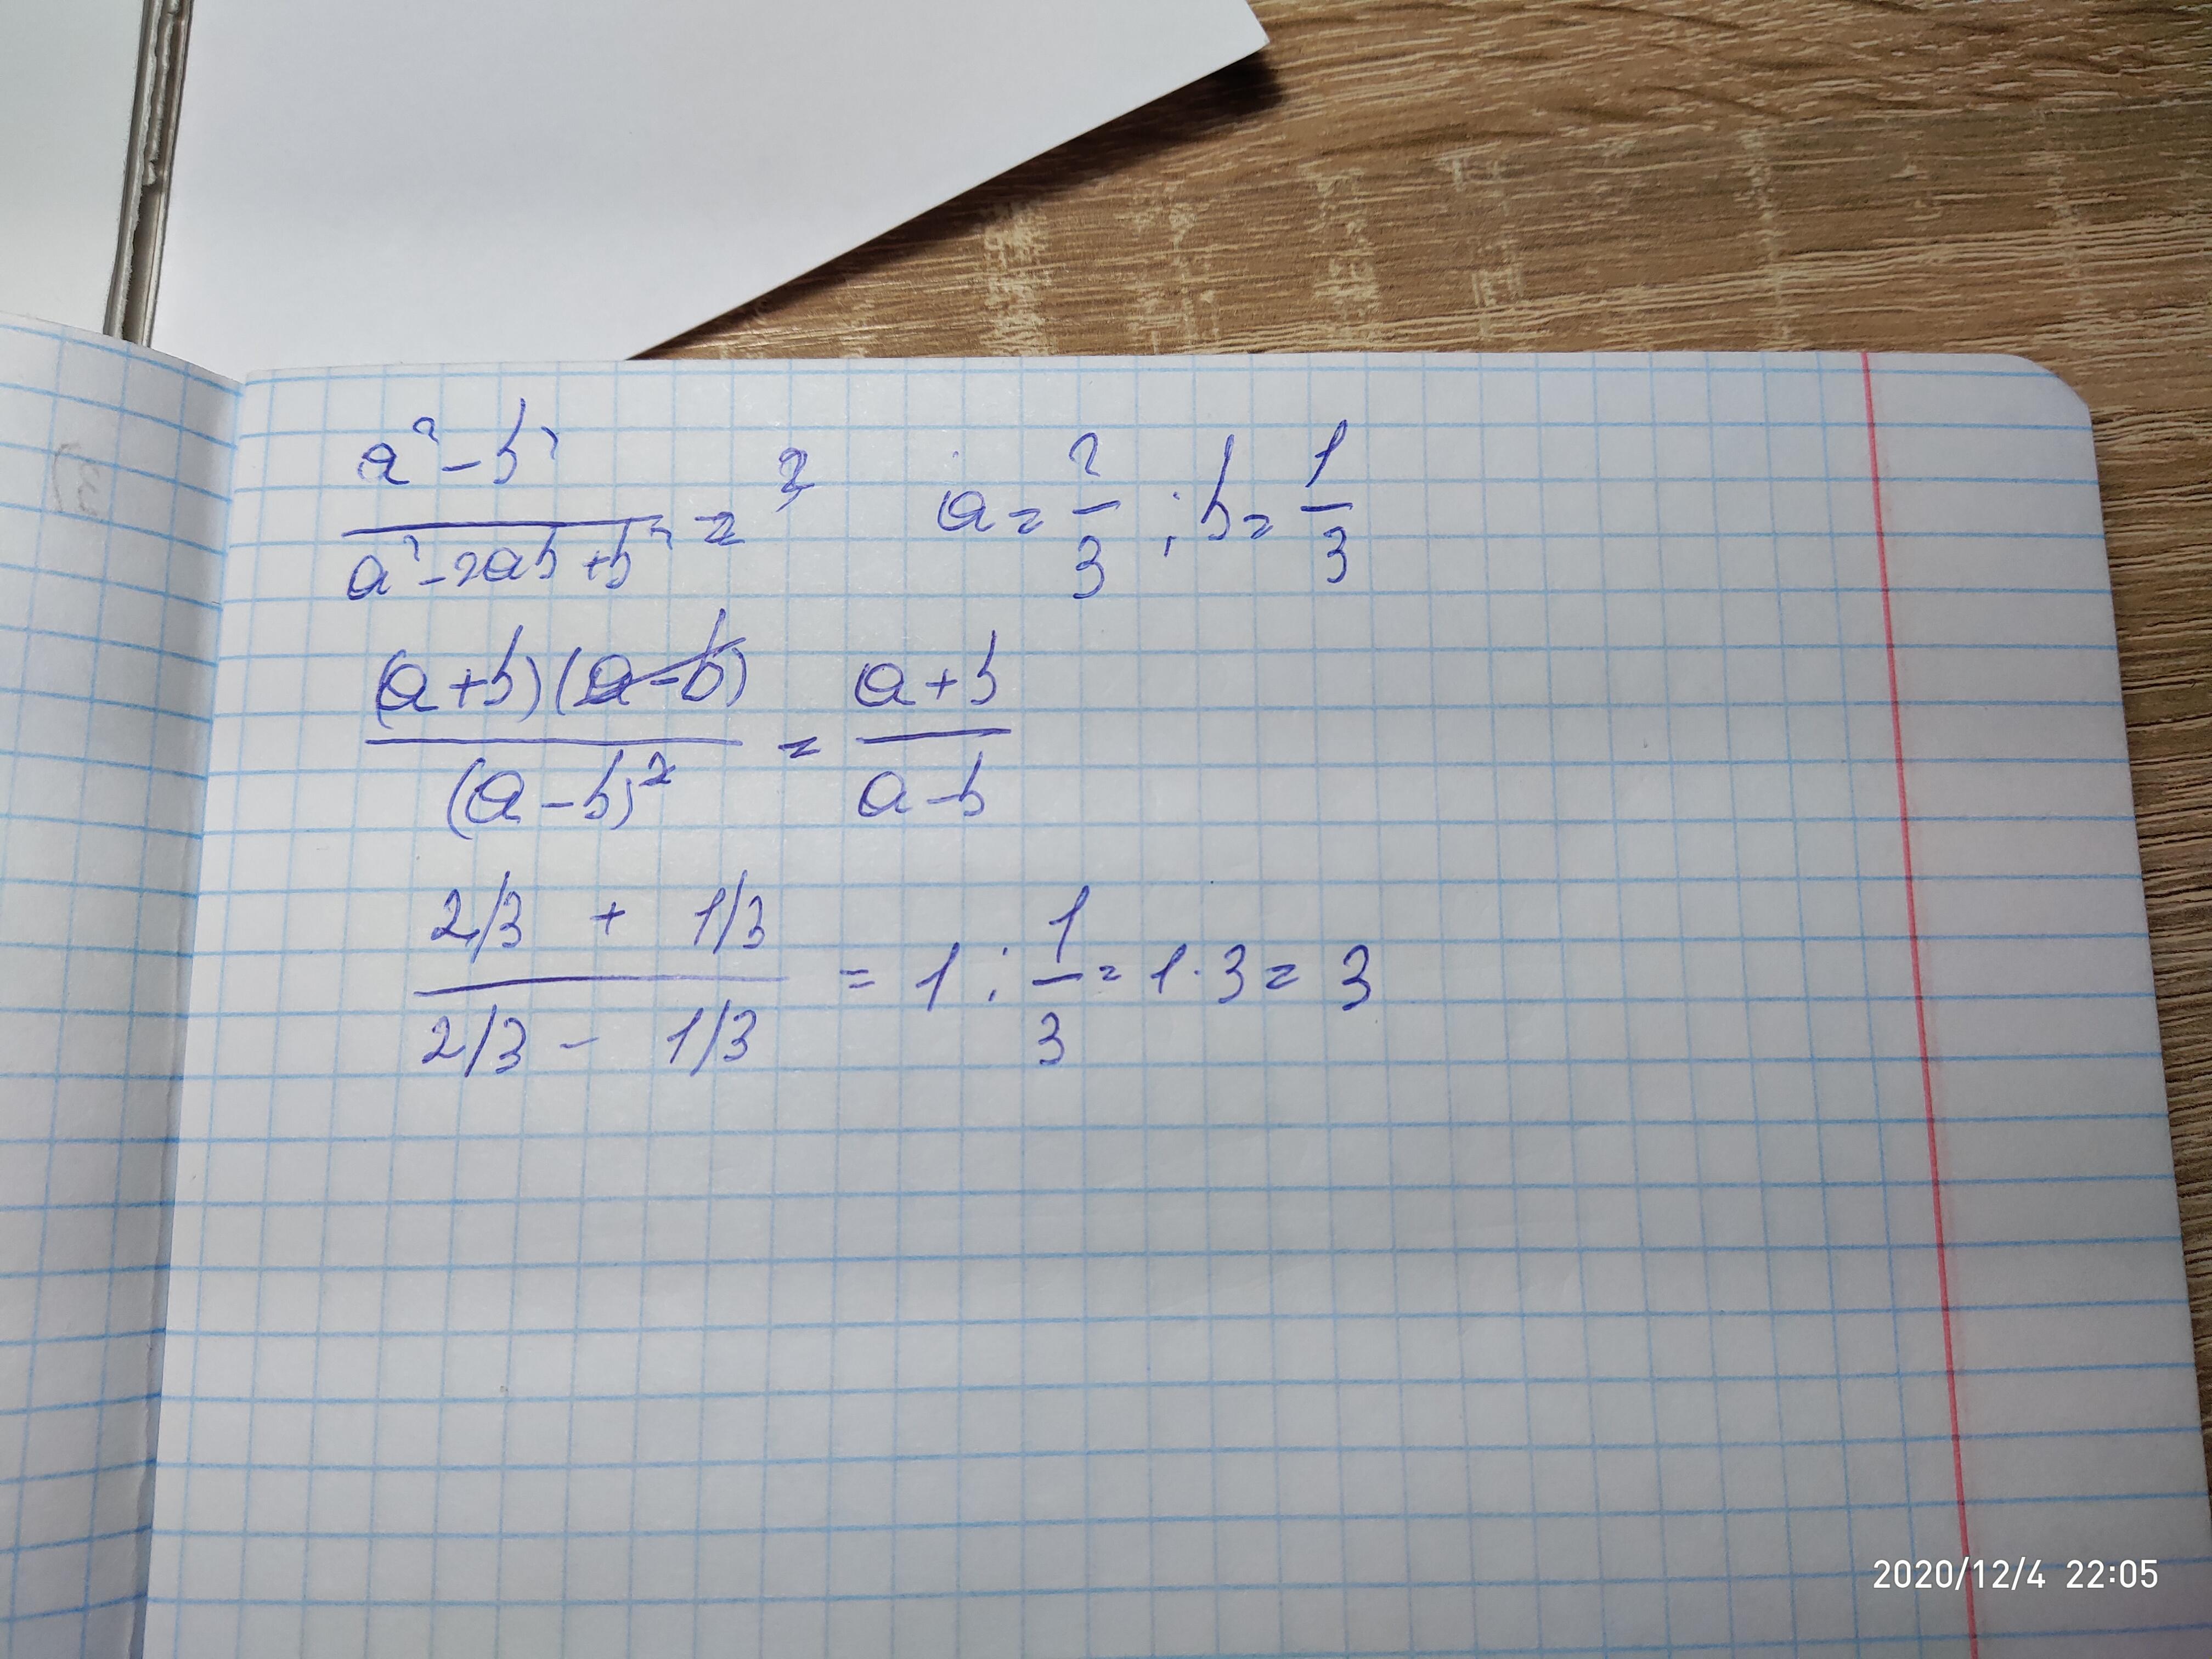 a² - b² / a² - 2ab + b² = ? a = 2/3 ; b = 1/3
(a+b)(a-b) / (a-b)² = a+b / a-b
2/3 + 1/3 / 2/3 - 1/3 = 1 : 1/3 = 1·3 = 3
2020/12/4 22:05